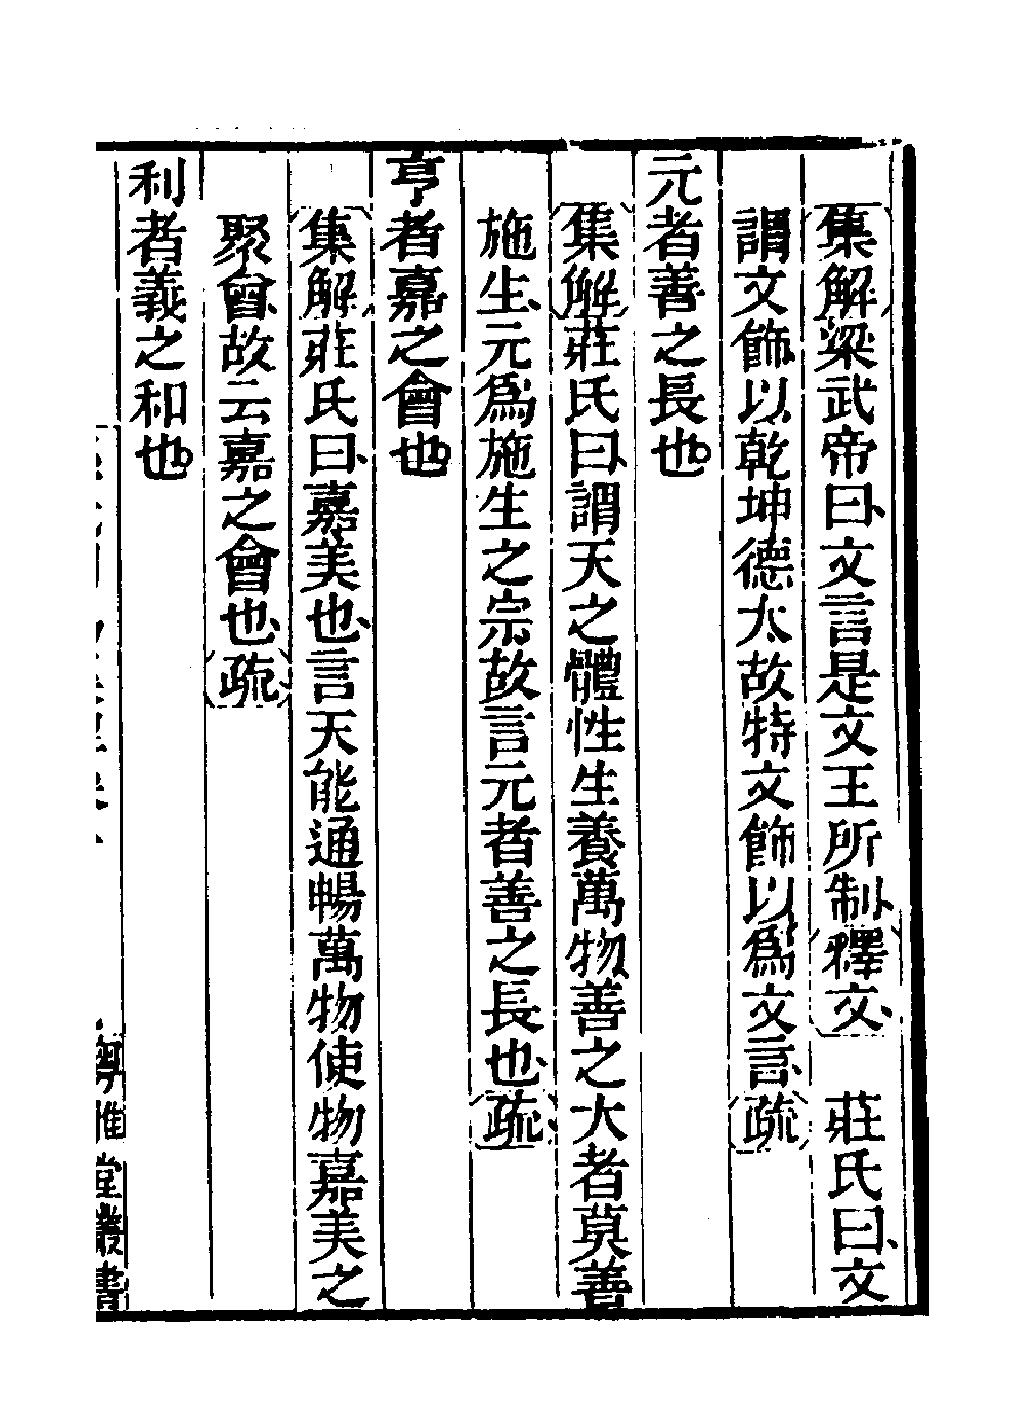 集解梁武帝曰文言是文王所制釋文　莊氏曰文
謂文飾以乾坤德大故特文飾以爲文言疏
元者善之長也
集解莊氏曰謂天之體性生養萬物善之大者莫善
施生元爲施生之宗故言元者善之長也疏
亨者嘉之會也
集解莊氏曰嘉美也言天能通暢萬物使物嘉美之
聚會故云嘉之會也疏
利者義之和也
粵雅堂叢書